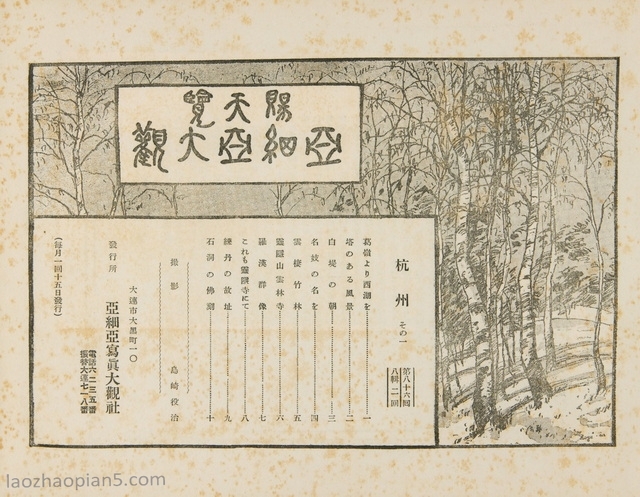 賜天覽
亞細亞大觀
杭州 その一
第八十六回
八輯ノ二回
葛嶺より西湖を 一
塔のある風景 二
白堤の朝 三
名妓の名を 四
雲棲竹林 五
靈隱山雲林寺 六
羅漢群像 七
これも靈隱寺にて 八
煉丹の故址 九
石洞の佛刻 十
撮影 島崎役治
發行所
大連市大黑町一〇
亞細亞寫眞大觀社
電話六二三五番
振替大連七一八番
(每月一回十五日發行)
laozhaopian5.com